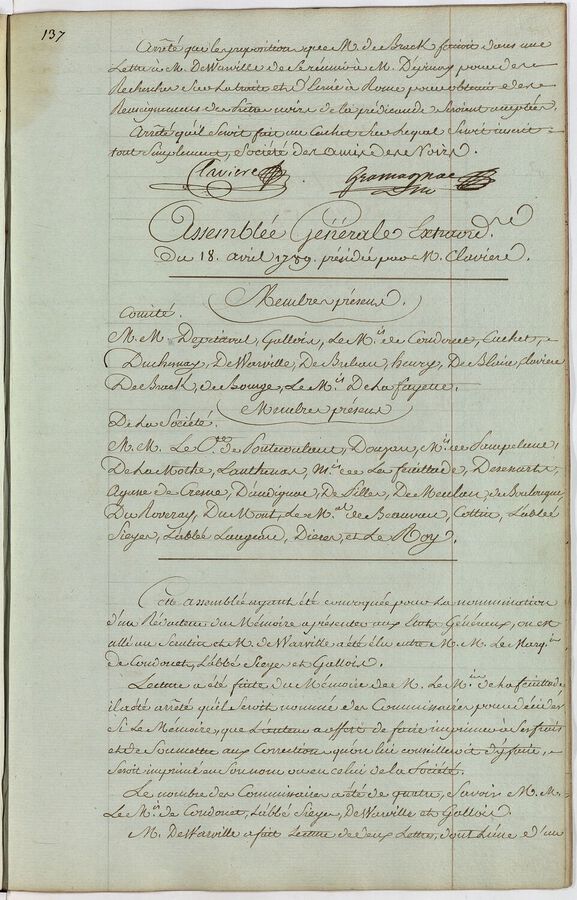 137
Arrêté que la proposition que M. de Brack feroit dans une
Lettre à M. De Warville de se réunir à M. Dupinay pour des
Recherches sur la traite et D' Écrire à Rome pour obtenir des
Renseignemens de Lettre noire de la seront acceptées.
Arrêté qu'il Seroit fait un Cachet Sur Lequel Seroit inscrit
tout Simplement, Société des Amis des Noirs.
Claviere Gramagnac
Assemblée Générale Extraord.re
Du 18. avril 1789. présidée par M. Claviere.
Membres présens.
Comité.
M. M. Desprtaval, Gallois, Le M.is de Condorcet, Cuchet,
Duchesnay, De Warville, De Breban, henry, De Blaire, Claviere
De Brack, de Bourge, Le M.is De La fayette.
Membres présens
De La Société.
M. M. Le C.te de Pontecoulant, Doujan, M.is de Pampelune,
De La Mothe, Lanthenas, M.is de La feuillade, Desessart,
Agasse de Cresne, Daudignac, De Piller, De Meulan, du Boulongne,
Du Roveray, Du Mont, Le M.al de Beauvau, Cottin, L'abbé
Sieyes, L'abbé Laugeri, Dieres, et Le Roy.
Cette assemblée ayant été convoquée pour La nommination
d'un Rédacteur du Mémoire a presenter aux Etats Généraux, on est
allé au Scrutin et M. de Warville a été élu entre M. M. Le Marq.is
de Condorcet, L'abbé Sieyes et Gallois.
Lecture a été faite du Mémoire de M. Le M.is de La feuillade,
il a été arrêté qu'il Seroit nommé des Commissaires pour décider
Si Le Mémoire, que L'auteur a offert de faire imprimer à Ses frais
et de Soumettre aux Corrections qu'on lui conseilleroit d'y faire,
Seroit imprimé en Son nom ou en celui de la Société.
Le nombre des Commissaires a été de quatre, Savoir M. M.
Le M.is de Condorcet, L'abbé Sieyes, De Warville et Gallois.
M. De Warville a fait Lecture de deux Lettres, dont L'une d'un